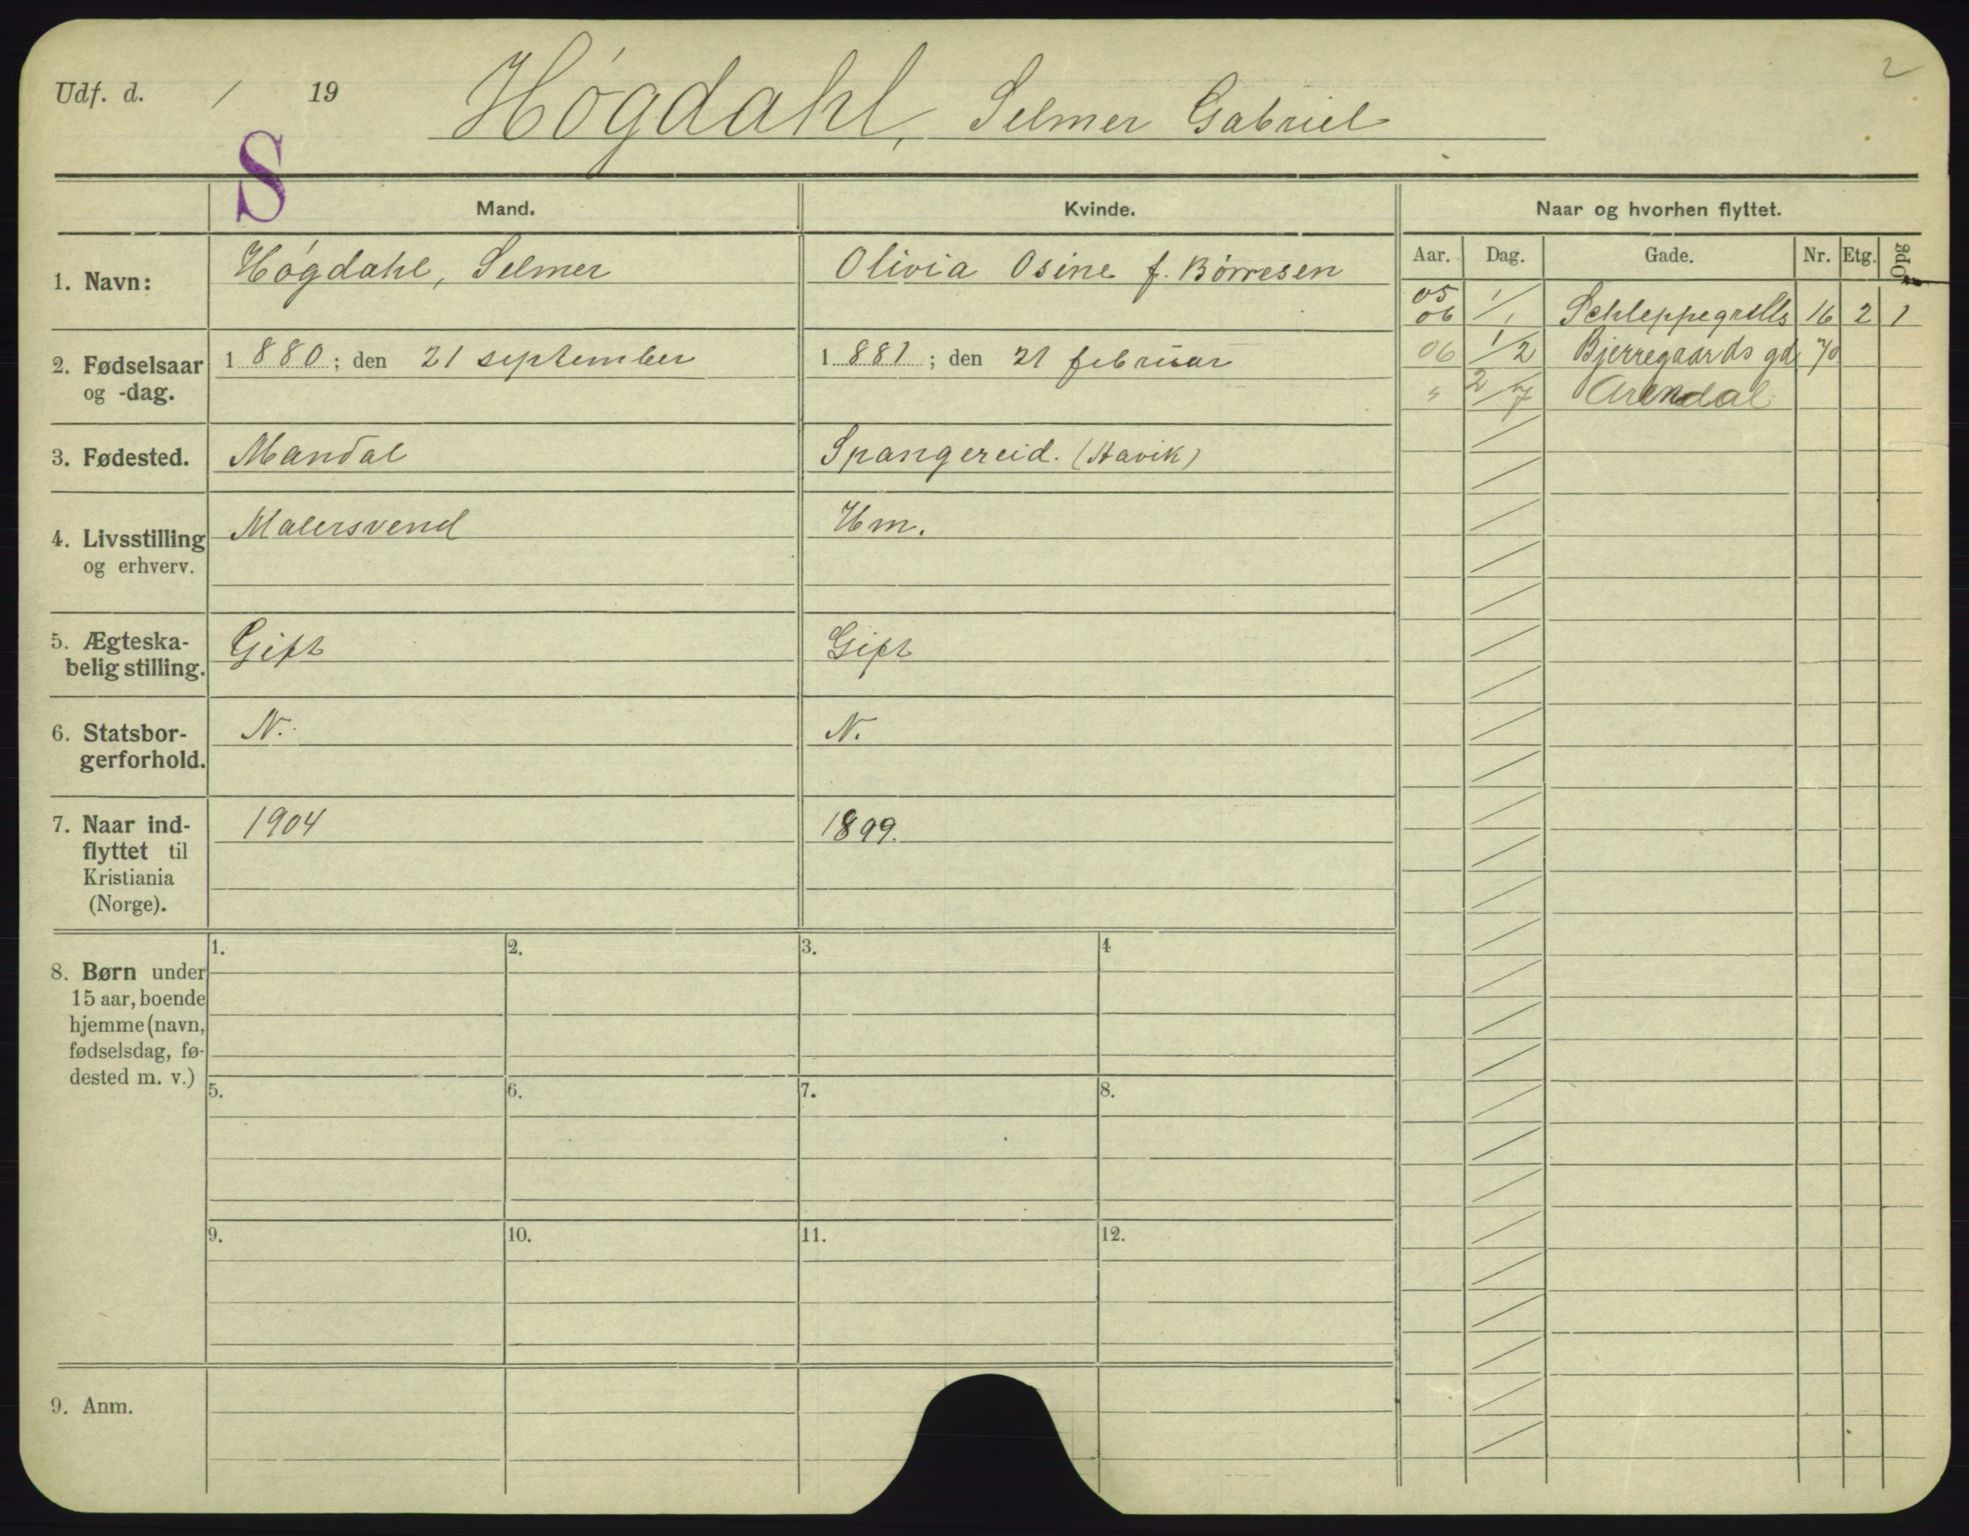 2
Udf. d. / 19 Høgdahl, Selmer Gabriel
S
Mand. Kvinde. Naar og hvorhen flyttet.
Aar. Dag. Gade. Nr. Etg. Opg
1. Navn: Høgdahl, Selmer Olivia Osine f. Børresen
05
06 1/1 Schleppegrells 16 2 1
06 1/2 Bjerregaards gd 70
" 2/7 Arendal
2. Fødselsaar og -dag. 1 880; den 21 september 1 881; den 21 februar
3. Fødested. Mandal Spangereid. (Aavik)
4. Livsstilling og erhverv. Malersvend Hm.
5. Ægteska-
belig stilling. Gift Gift
6. Statsbor-
gerforhold. N. N.
7. Naar ind-
flyttet til
Kristiania
(Norge). 1904 1899.
8. Børn under
15 aar, boende
hjemme (navn,
fødselsdag, fø-
dested m. v.)
1. 2. 3. 4
5. 6. 7. 8.
9. 10. 11. 12.
9. Anm.